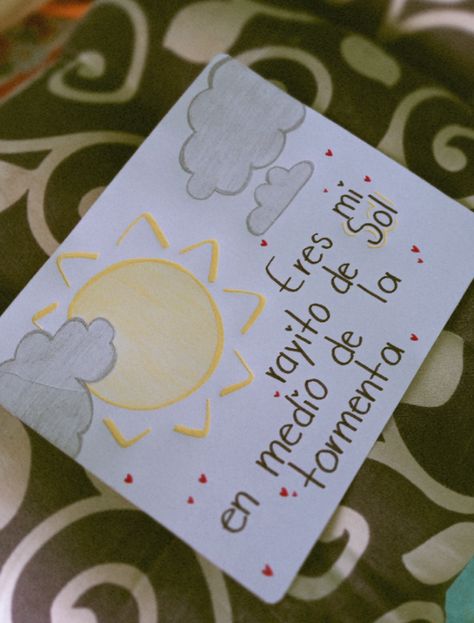 Eres mi
rayito de Sol
en medio de la
tormenta